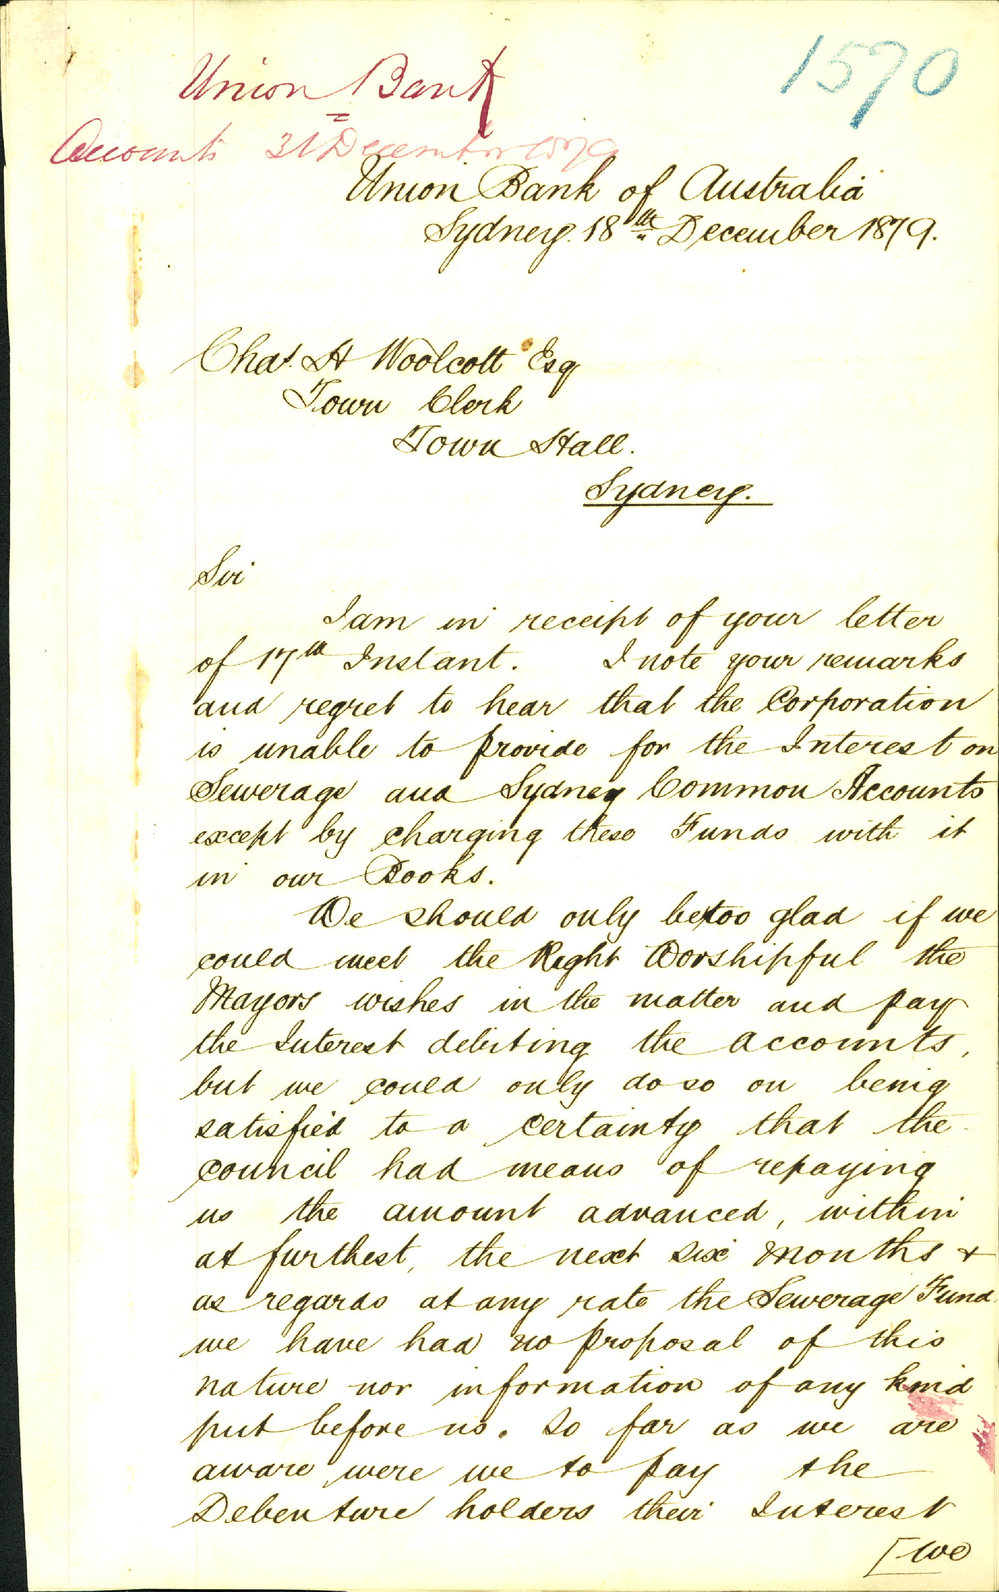 1570
Union Bank
Accounts 31 December 1879
Union Bank of Australia
Sydney. 18th December 1879.
Chas. H Woolcott Esq
Town Clerk
Town Hall.
Sydney.
Sir
I am in receipt of your letter
of 17th Instant. I note your remarks
and regret to hear that the Corporation
is unable to provide for the Interest on
Sewerage and Sydney Common Accounts
except by charging these Funds with it
in our Books.
We should only be too glad if we
could meet the Right Worshipful the
Mayors wishes in the matter and pay
the Interest debiting the accounts,
but we could only do so on benig
satisfied to a certainty that the
council had means of repaying
us the amount advanced, within
at furthest, the next six months &
as regards at any rate the Sewerage Fund
we have had no proposal of this
nature nor information of any kind
put before us. So far as we are
aware were we to pay the
Debenture holders their Interest
[we